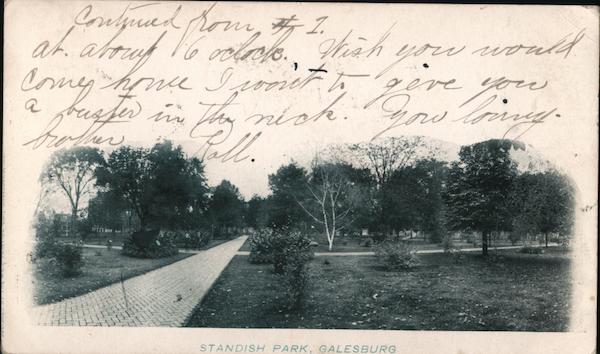 Contined from # 1
at. about 6 oclock. Wish you would
come home I want to geve you
a buster in the neck. You loving.
brother
STANDISH PARK, GALESBURG